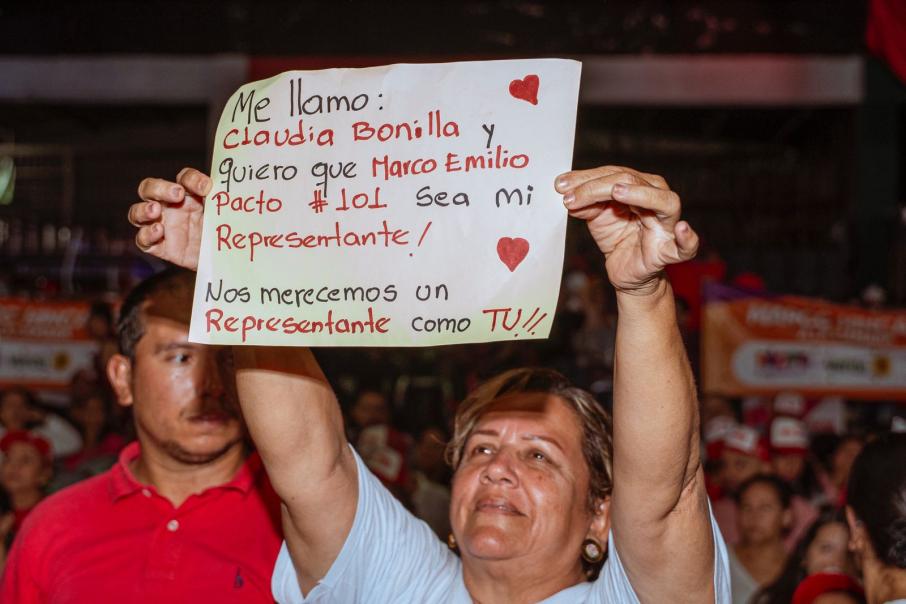 Me llamo:
Claudia Bonilla y
quiero que Marco Emilio
Pacto #101 sea mi
Representante!
Nos merecemos un
Representante como TU!!!